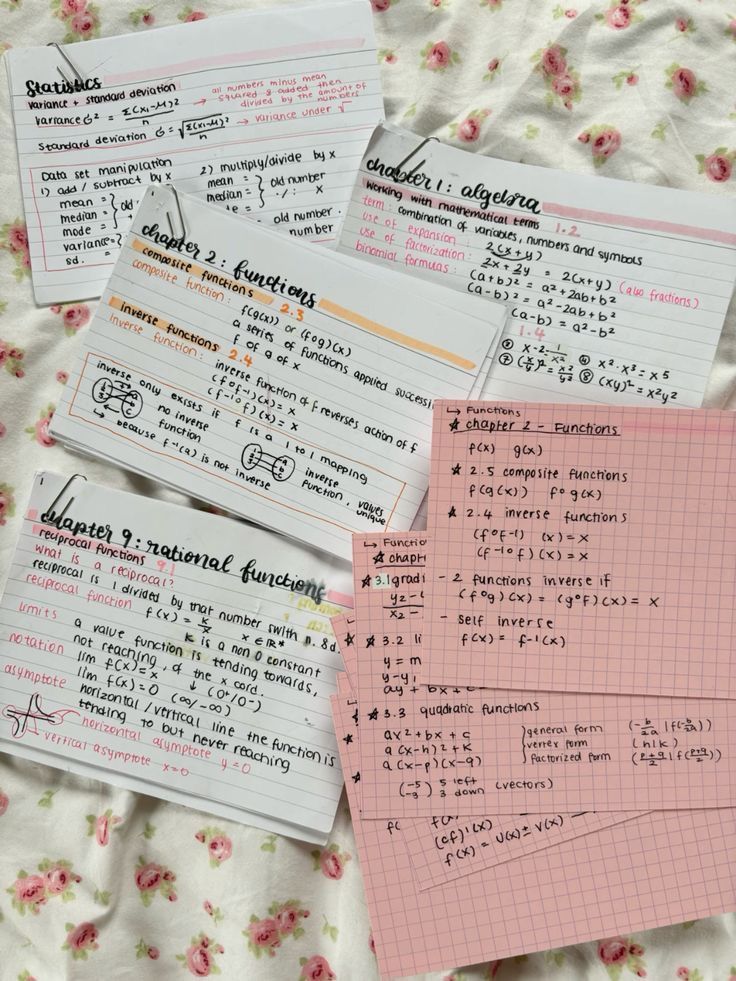 Statistics
variance + standard deviation
variance σ² = Σ(xi-μ)²/n → all numbers minus mean
squared & added then
divided by the amount of
numbers
standard deviation σ = √Σ(xi-μ)²/n → variance under √
Data set manipulation
1) add / subtract by x
mean =
median =
mode =
variance =
sd. =
old
2) multiply/divide by x
mean =
median =
old number
·/÷ x
old number
number
chapter 1: algebra
working with mathematical terms 1.2
term: combination of variables, numbers and symbols
use of expansion: 2(x+y)
use of factorization: 2x+2y = 2(x+y) (also fractions)
binomial formulas: (a+b)² = a²+2ab+b²
(a-b)² = a²-2ab+b²
(a-b) = a²-b²
1.4
x-2 = 1/x²
④ x²·x³ = x5
⑦ (x/y)² = x²/y²
⑧ (xy)² = x²y²
chapter 2: functions
composite functions 2.3
composite function: f(g(x)) or (fog)(x)
a series of functions applied successi
f of g of x
inverse functions 2.4
inverse function: inverse function of f reverses action of f
(f o f-1)(x) = x
(f-1 o f)(x) = x
inverse only exists if f is a 1 to 1 mapping
no inverse
function
↳ because f-1(a) is not inverse
inverse
function, values
unique
chapter 9: rational functions
reciprocal functions 9.1
what is a reciprocal?
reciprocal is 1 divided by that number switch n. & d.
reciprocal function f(x) = k/x x ∈ R*
k is a non 0 constant
limits a value function is tending towards,
not reaching, of the x cord.
notation lim f(x) = x ↓ (0+/0-)
lim f(x) = 0 (∞/-∞)
asymptote horizontal/vertical line the function is
tending to but never reaching
horizontal asymptote y=0
vertical asymptote x=0
↳ Functions
★ chapter 2 - Functions
f(x) g(x)
★ 2.5 composite functions
f(g(x)) f o g(x)
★ 2.4 inverse functions
(f o f-1) (x) = x
(f-1 o f)(x) = x
- 2 functions inverse if
(f o g)(x) = (g o f)(x) = x
- self inverse
f(x) = f-1(x)
↳ Functio
★ chapt
★ 3.1 gradi
y2-
x2-
★ 3.2 li
y = m
y-y1
ay + bx + c
★ 3.3 quadratic functions
ax² + bx + c } general form (-b/2a | f(-b/2a))
a(x-h)² + k } vertex form (h|k)
a(x-p)(x-q) } factorized form (p+q/2 | f(p+q/2))
(-5/-3) 5 left
3 down (vectors)
f(
(cf)'(x)
f'(x) = u(x) ± v(x)